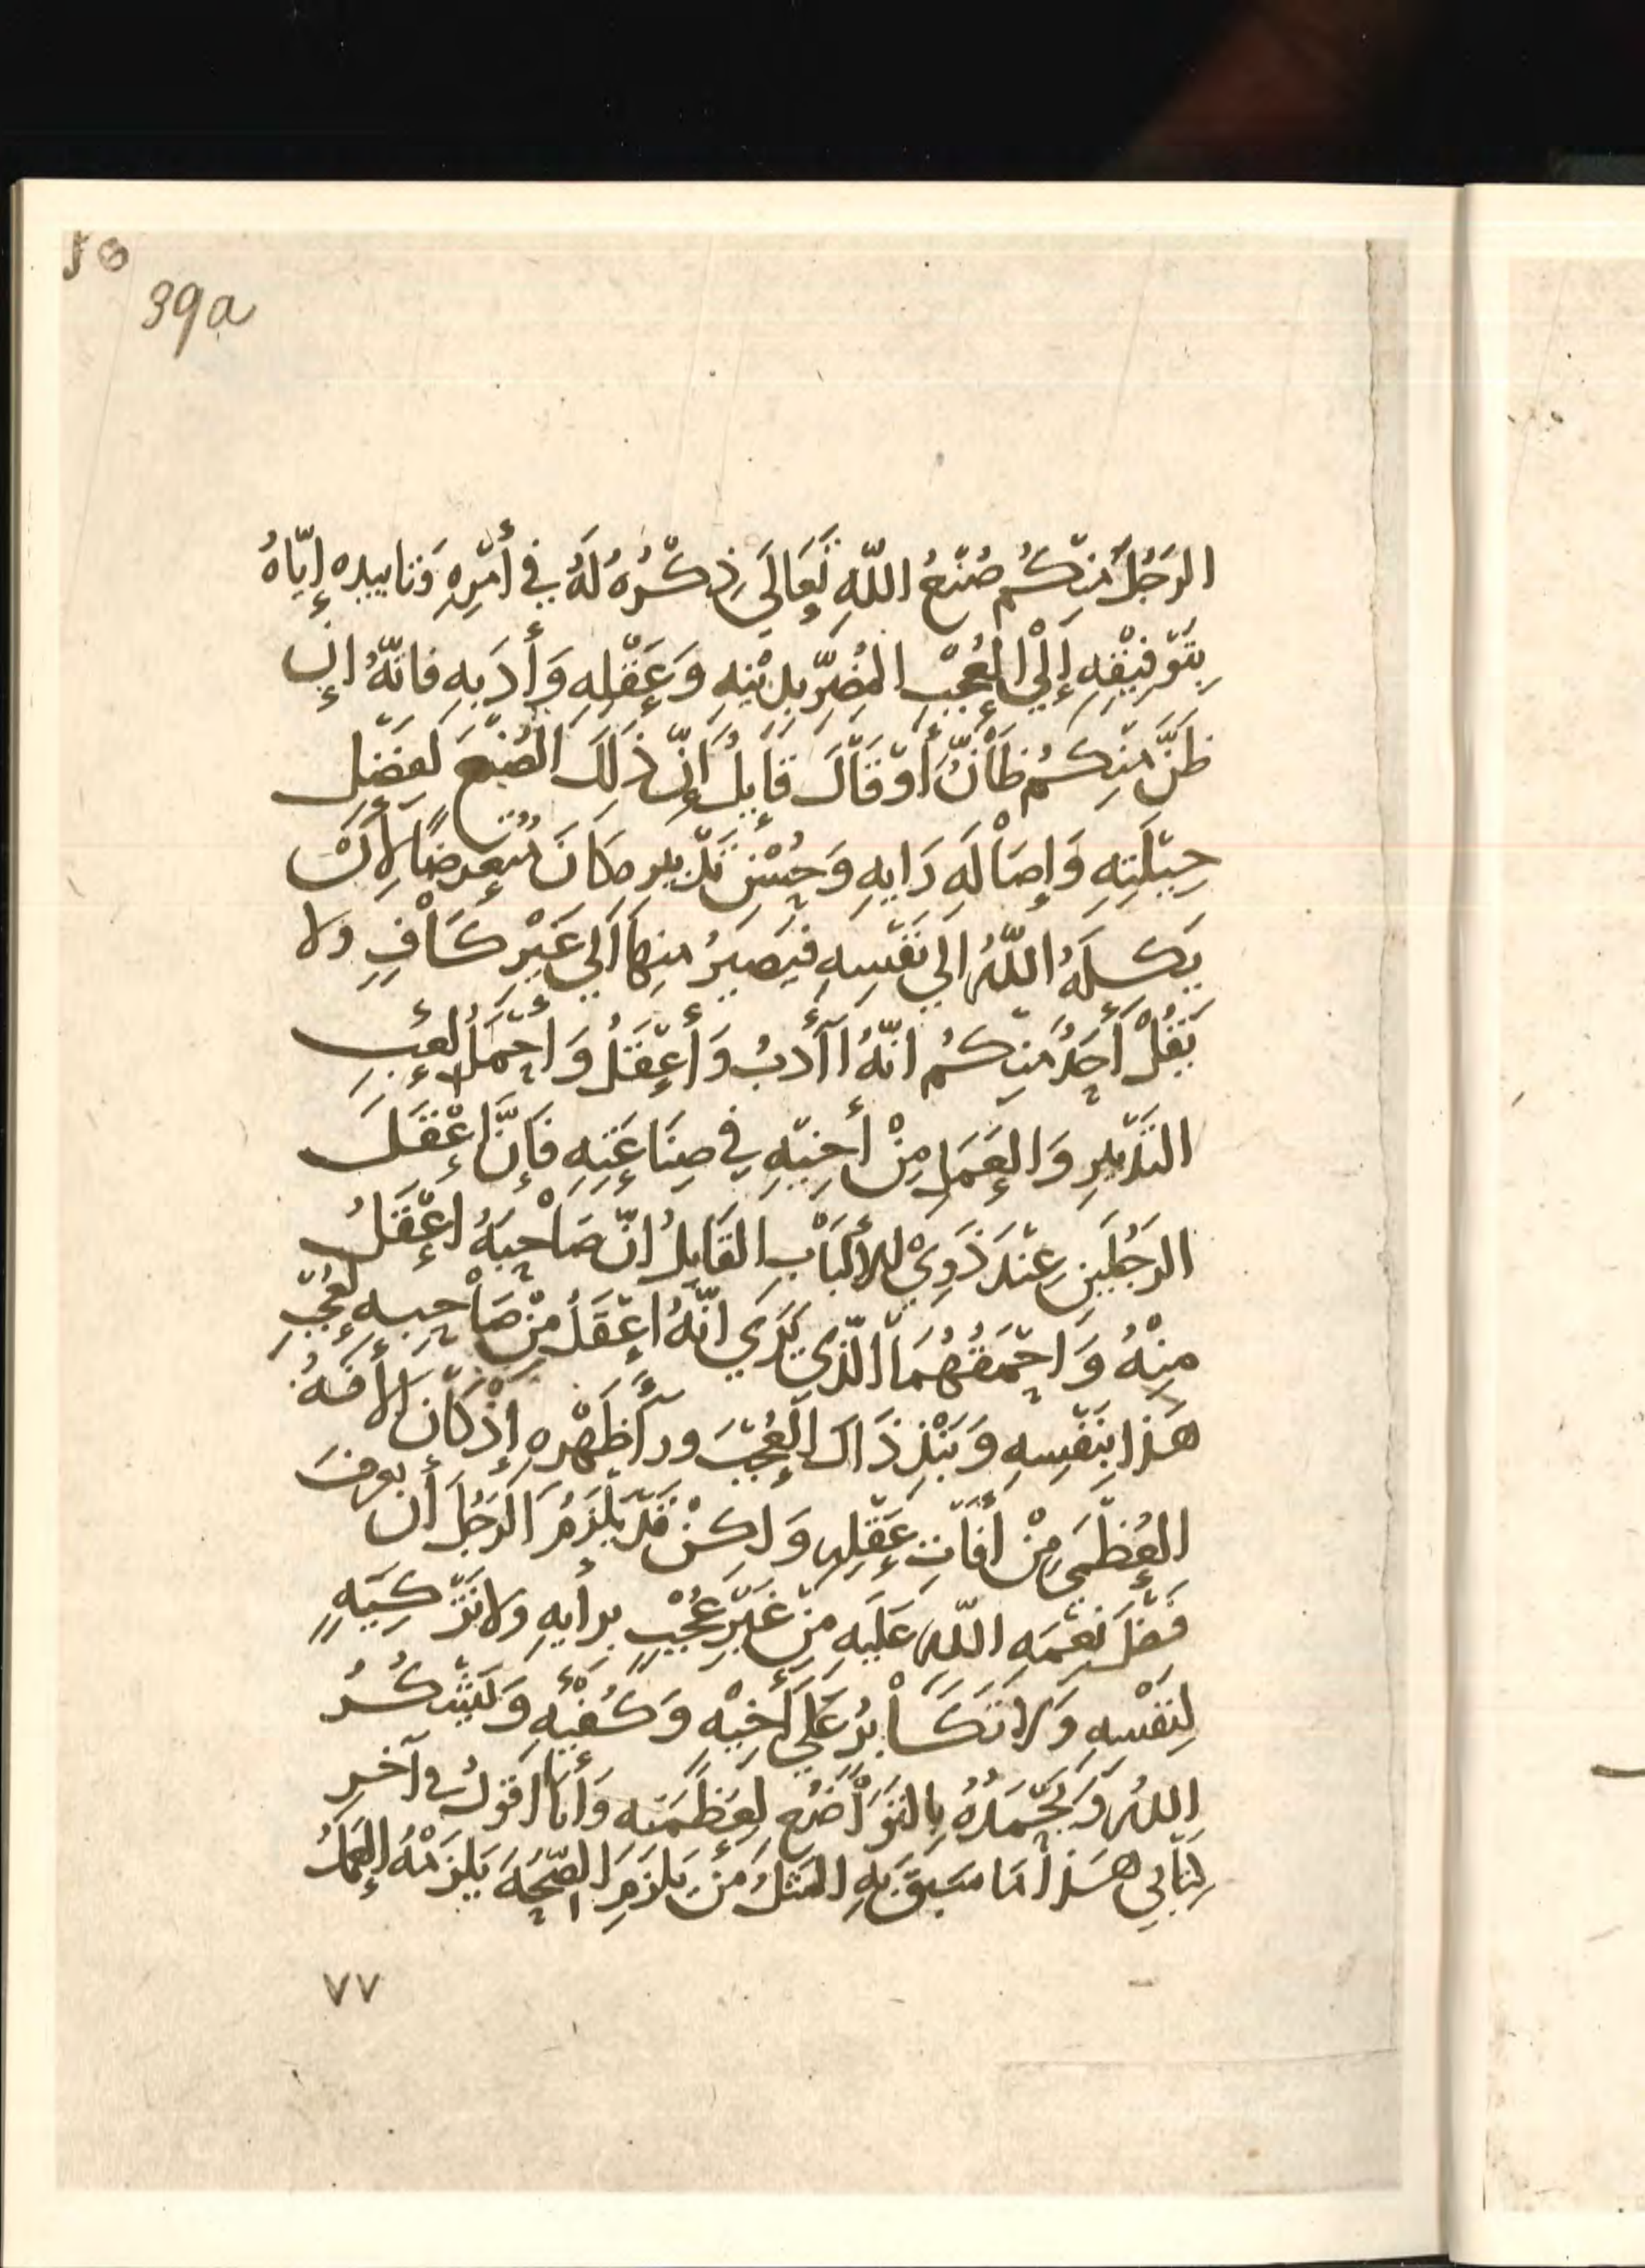 39a
الرَجُلَ مِنْكُم صُنْعُ اللّهِ تَعَالَى ذِكْرُهُ لَهُ في أَمْرِهِ وَتاييده إيّاهُ
بِتَوْفِيْقِهِ إِلَيْ العُجْبِ المُضِرِّ بِدِيْنِهِ وَعَقْلِهِ وَأَدَبِهِ فانّهُ إن
ظَنَّ مِنْكُم ظَآنٌّ أَوْ قَالَ قَايِلٌ إِنّ ذَلِكَ الصُنْعَ لِفَضْلِ
حِيْلَتِهِ وَإِصَالَهِ رَايِهِ وَحُسْنِ تَدْبِيرِهِ كَانَ مُتَعرضًا لِأَنْ
يَكِلَهُ اللّهُ إلي نَفْسِهِ فيَصيرُ مِنها إلي غَيْرِ كَافٍ ولا
يَقُلْ أَحَدٌ مِنكُم انّهُ اآدَبُ وَأَعْقَلُ وَأَحْمَلُ لعِبِ
التَدْبِيرِ وَالعَمَلِ مِنْ أَخِيْهِ في صِنَاعَتِهِ فَإِنَّ اعْقَلَ
الرَجُلَينِ عِنْدَ ذَوِيْ للألْبَابِ القَايِلُ انّ صَاحِبَهُ اعْقَلُ
مِنْهُ وَاحْمَقُهُمَا الّذي يَرَي انّهُ اعْقَلُ مِنْ صَاحِبِهِ لعُجْبِ
هَذا بِنَفْسِهِ وَنَبْذِ ذَاكَ العُجْبَ ورآ ظَهْرِهِ إِذْ كَانَ الآفَهُ
العُظْمَي مِنْ أَفَاتِ عَقْلِهِ وَلكِنْ قَدْ يَلْزَمُ الرَجُلَ أن يعرفَ
فَضْلَ نِعْمَهِ اللّهِ عَلَيهِ مِنْ غَيْرِ عُجْبٍ برأيهِ ولا تَزْكِيَهٍ
لِنَفْسِهِ وَلا تَكَابُرُ عَلَي أَخِيْهِ وَكُفْئِهِ وَيَشْكُرُ
اللهَ وَيَحْمَدُهُ بِالتوَاضُعِ لِعَظَمَتِه وَأَنَا أَقُولُ في آخرِ
كِتَابي هَذَا مَا سَبَقَ بِهِ المَثَلُ مَن يَلزَمِ الصِّحَهَ يَلزَمْهُ العَمَلُ
٧٧